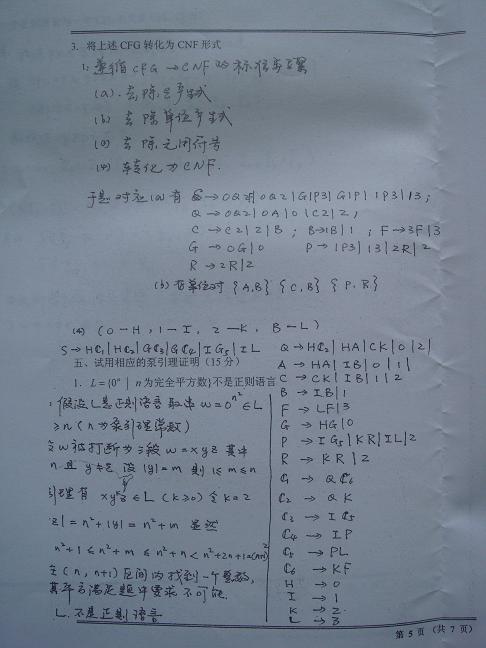 3. 将上述CFG转化为CNF形式
1: 遵循CFG → CNF的标准步骤
(a). 去除ε产生式
(b) 去除单位产生式
(c) 去除无用符号
(4) 转化为CNF.
于是对应(a)有 S → 0Q2 | 0Q2 | G1P3 | G1P | 1P3 | 13 ;
Q → 0Q2 | 0A | 0 | C2 | 2 ,
C → C2 | 2 | B ; B → 1B | 1 ; F → 3F | 3
G → 0G | 0 P → 1P3 | 13 | 2R | 2
R → 2R | 2
(b) 有单位对 {A,B} {C,B} {P,R}
(4) (0—H, 1—I, 2—K, B—L)
S → HC₁ | HC₂ | GC₃ | GC₄ | IG₅ | IL
Q → HC₂ | HA | CK | 0 | 2 |
A → HA | IB | 0 | 1 |
五、试用相应的泵引理证明(15分)
1. L={0ⁿ | n为完全平方数}不是正则语言
假设L是正则语言 取串 w = 0^n² ∈ L
≥n (n为泵引理常数)
w被打断为三段 w = xyz 其中
n 且 y≠ε 设 |y| = m 则 1 ≤ m ≤ n
引理有 xyᵏz ∈ L (k≥0) 令 k = 2
z| = n² + |y| = n² + m 显然
n²+1 ≤ n²+m ≤ n²+n < n²+2n+1 = (n+1)²
在(n, n+1)区间内找到一个整数,
其平方满足题中要求 不可能.
L 不是正则语言
C → CK | IB | 1 | 2
B → IB | 1
F → LF | 3
G → HG | 0
P → IG₅ | KR | IL | 2
R → KR | 2
C₁ → QC₆
C₂ → QK
C₃ → IC₅
C₄ → IP
C₅ → PL
C₆ → KF
H → 0
I → 1
K → 2
L → 3
第 5 页 (共 7 页)